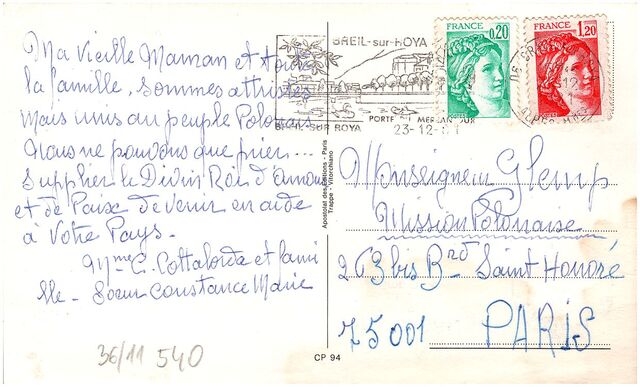 Ma vieille Maman et toute
la famille, sommes attristés
Mais unis au peuple Polonais
Nous ne pouvons que prier...
Supplier le Divin Roi d'Amour
et de Paix de venir en aide
à Votre Pays.
Mme C. Cottalorda et fami
lle - Soeur Constance Marie
36/11 540
BREIL-sur-ROYA
BREIL-SUR ROYA
PORTE DU MERCANTOUR
23-12-81
FRANCE
0,20
FRANCE
1,20
Apostolat des Editions - Paris
Trappe - Vitorchiano
CP 94
Monseigneur Glemp
Mission Polonaise
263 bis Brd Saint Honoré
75001 PARIS